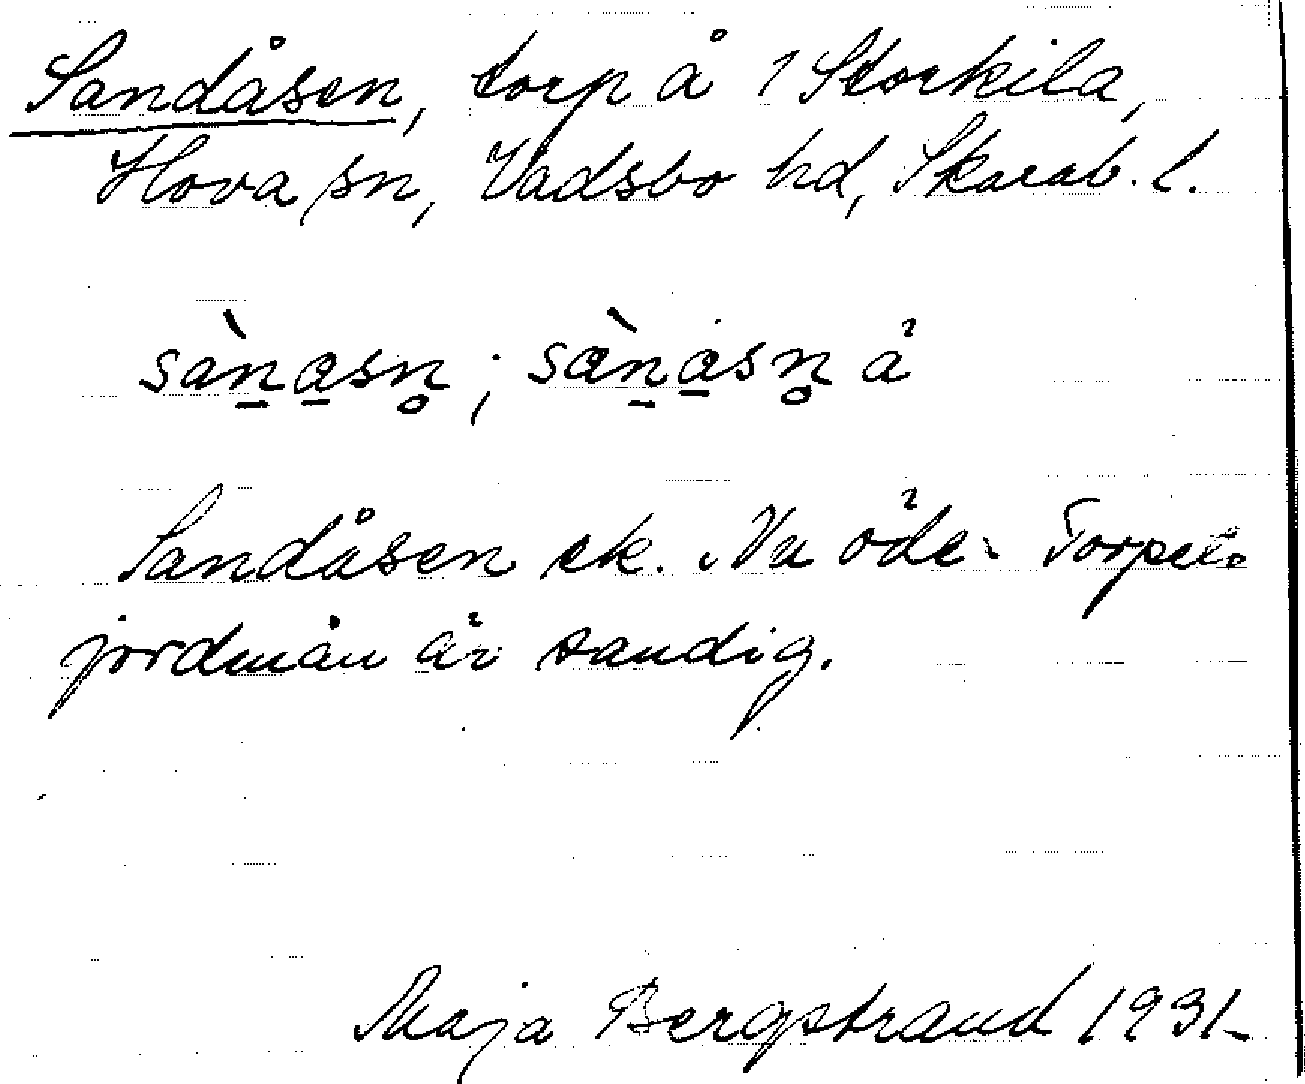 Sandåsen, torp å 1 Storkila,
Hova sn, Vadsbo hd, Skarab. l.
sàn̠a̠sn̥; sàn̠a̠sn̥ å
Sandåsen ek. Nu öde. Torpets
jordmån är sandig.
Maja Bergstrand 1931